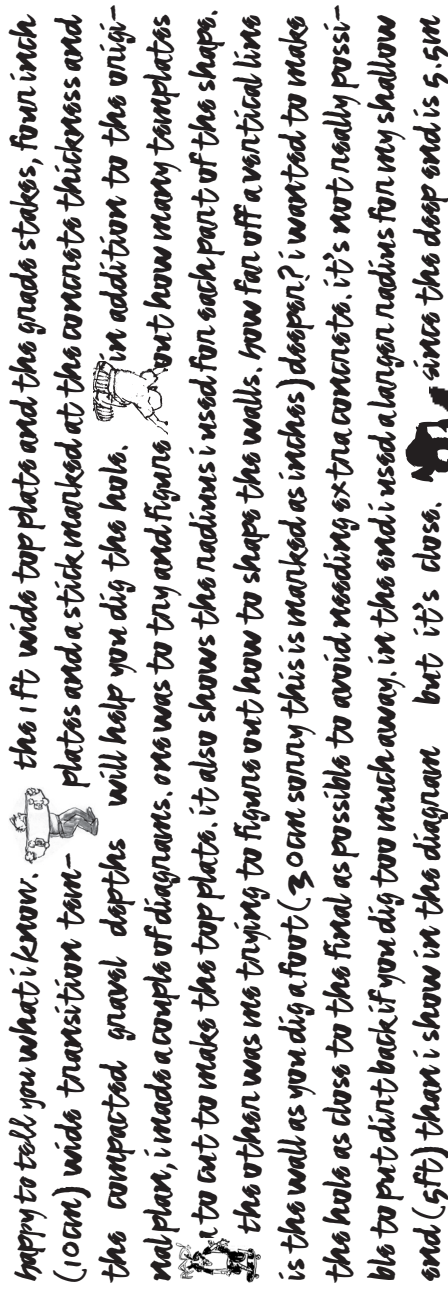 happy to tell you what i know. the 1 ft wide top plate and the grade stakes, four inch
(10cm) wide transition tem- plates and a stick marked at the concrete thickness and
the compacted gravel depths will help you dig the hole. in addition to the origi-
nal plan, i made a couple of diagrams. one was to try and figure out how many templates
to cut to make the top plate. it also shows the radius i used for each part of the shape.
the other was me trying to figure out how to shape the walls. how far off a vertical line
is the wall as you dig a foot (30cm sorry this is marked as inches) deeper? i wanted to make
the hole as close to the final as possible to avoid needing extra concrete. it's not really possi-
ble to put dirt back if you dig too much away. in the end i used a larger radius for my shallow
end (5ft) than i show in the diagram but it's close. since the deep end is 5.5m